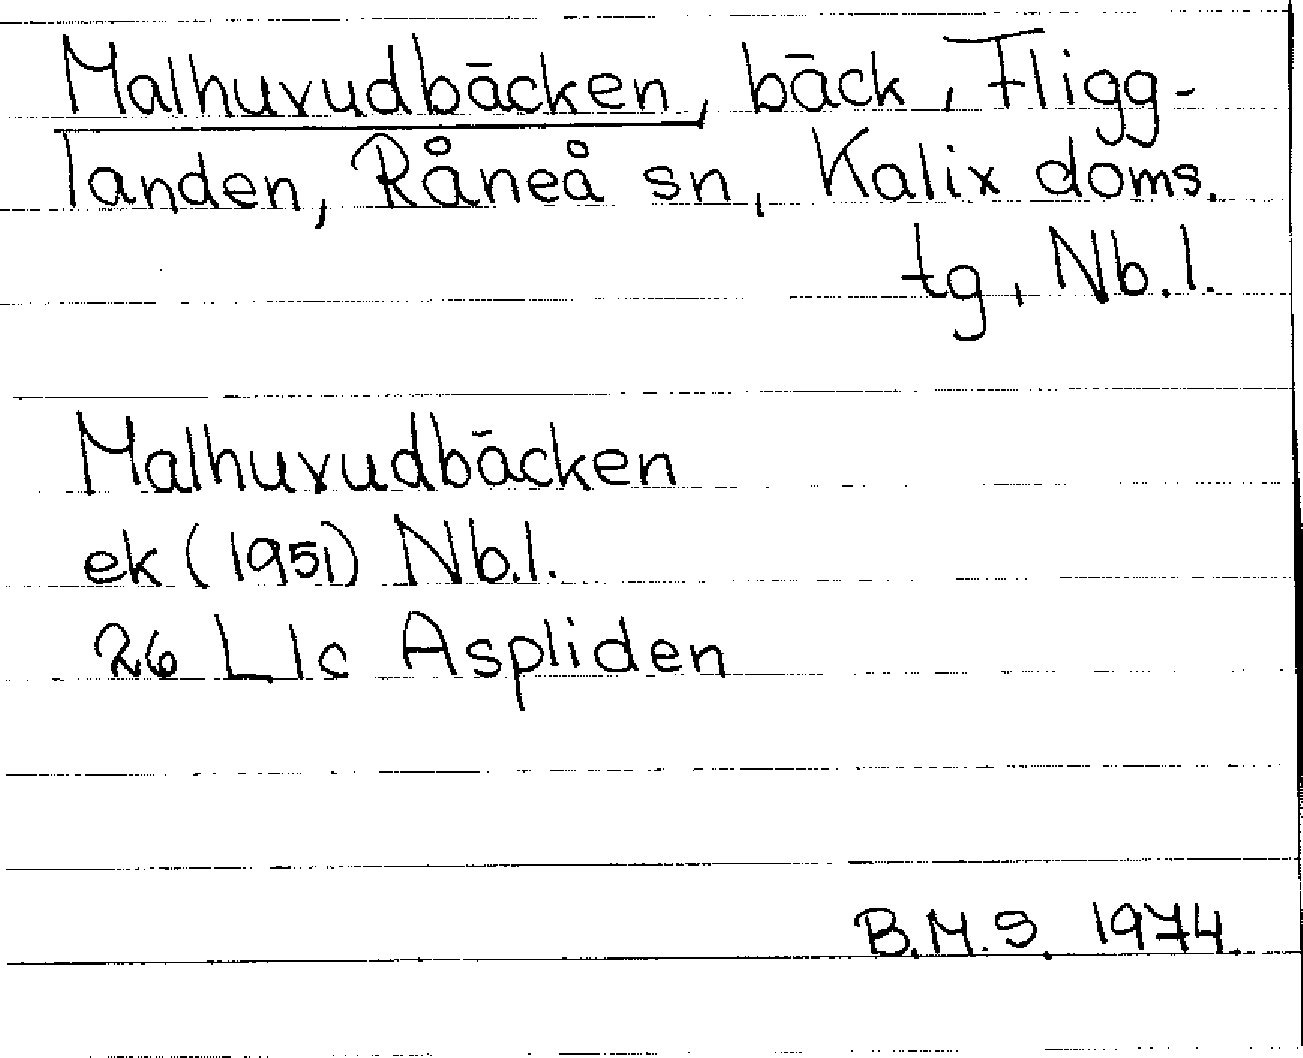 Malhuvudbäcken, bäck, Fligg-
landen, Råneå sn, Kalix doms.
tg, Nb.l.
Malhuvudbäcken
ek (1951) Nb.l.
26 L1c Aspliden
B.M.S. 1974.